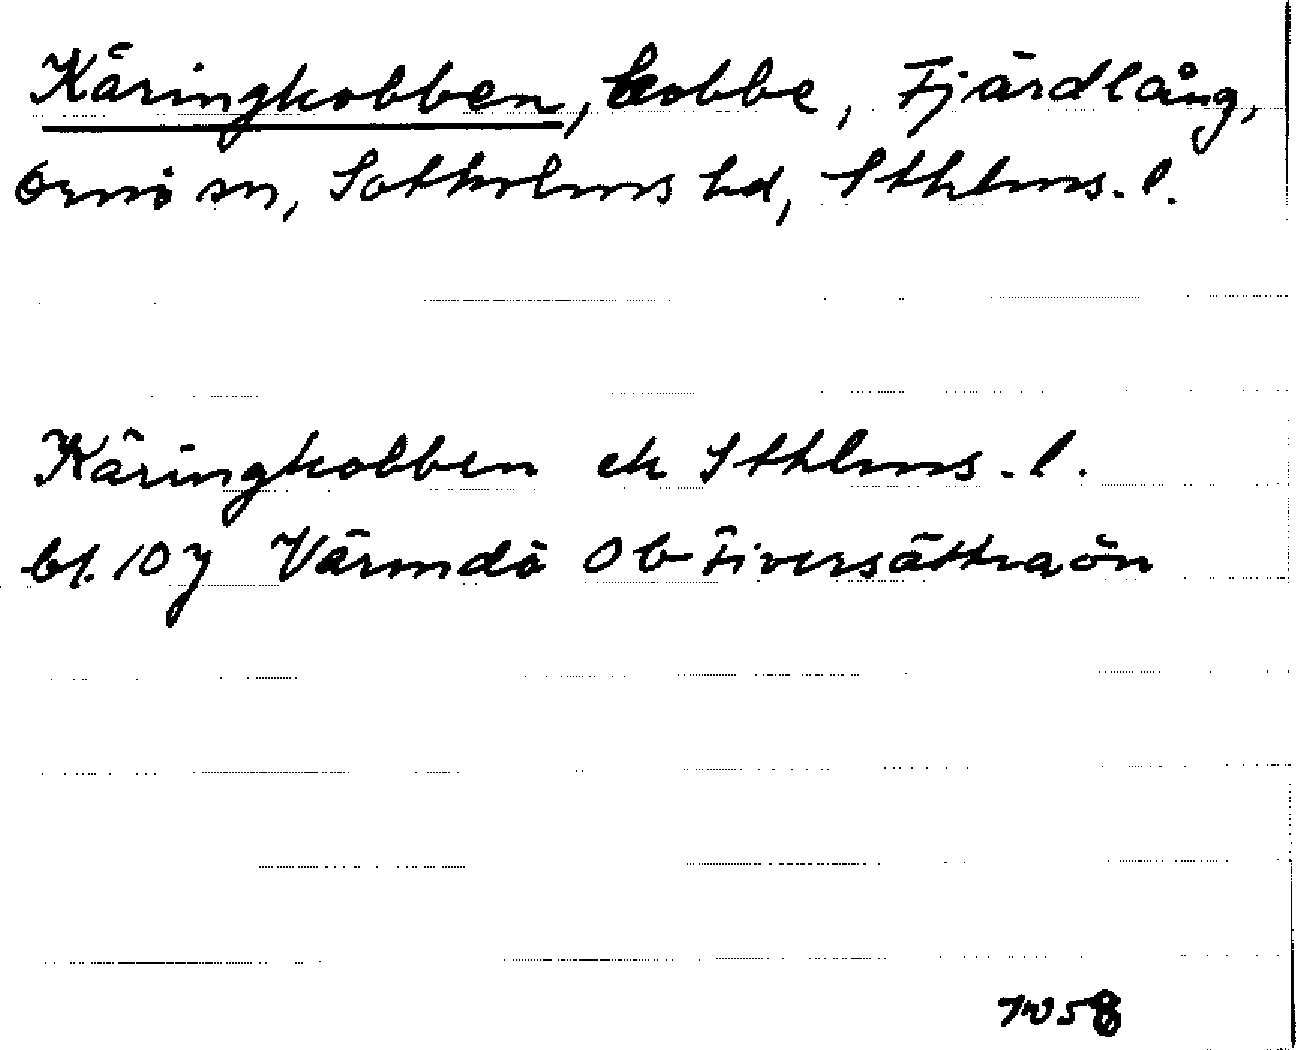 Käringkobben, kobbe, Fjärdlång,
Ornö sn, Sotholms hd, Sthlms. l.
Käringkobben ek Sthlms. l.
bl. 107 Värmdö Ob Tiversättraön
7058